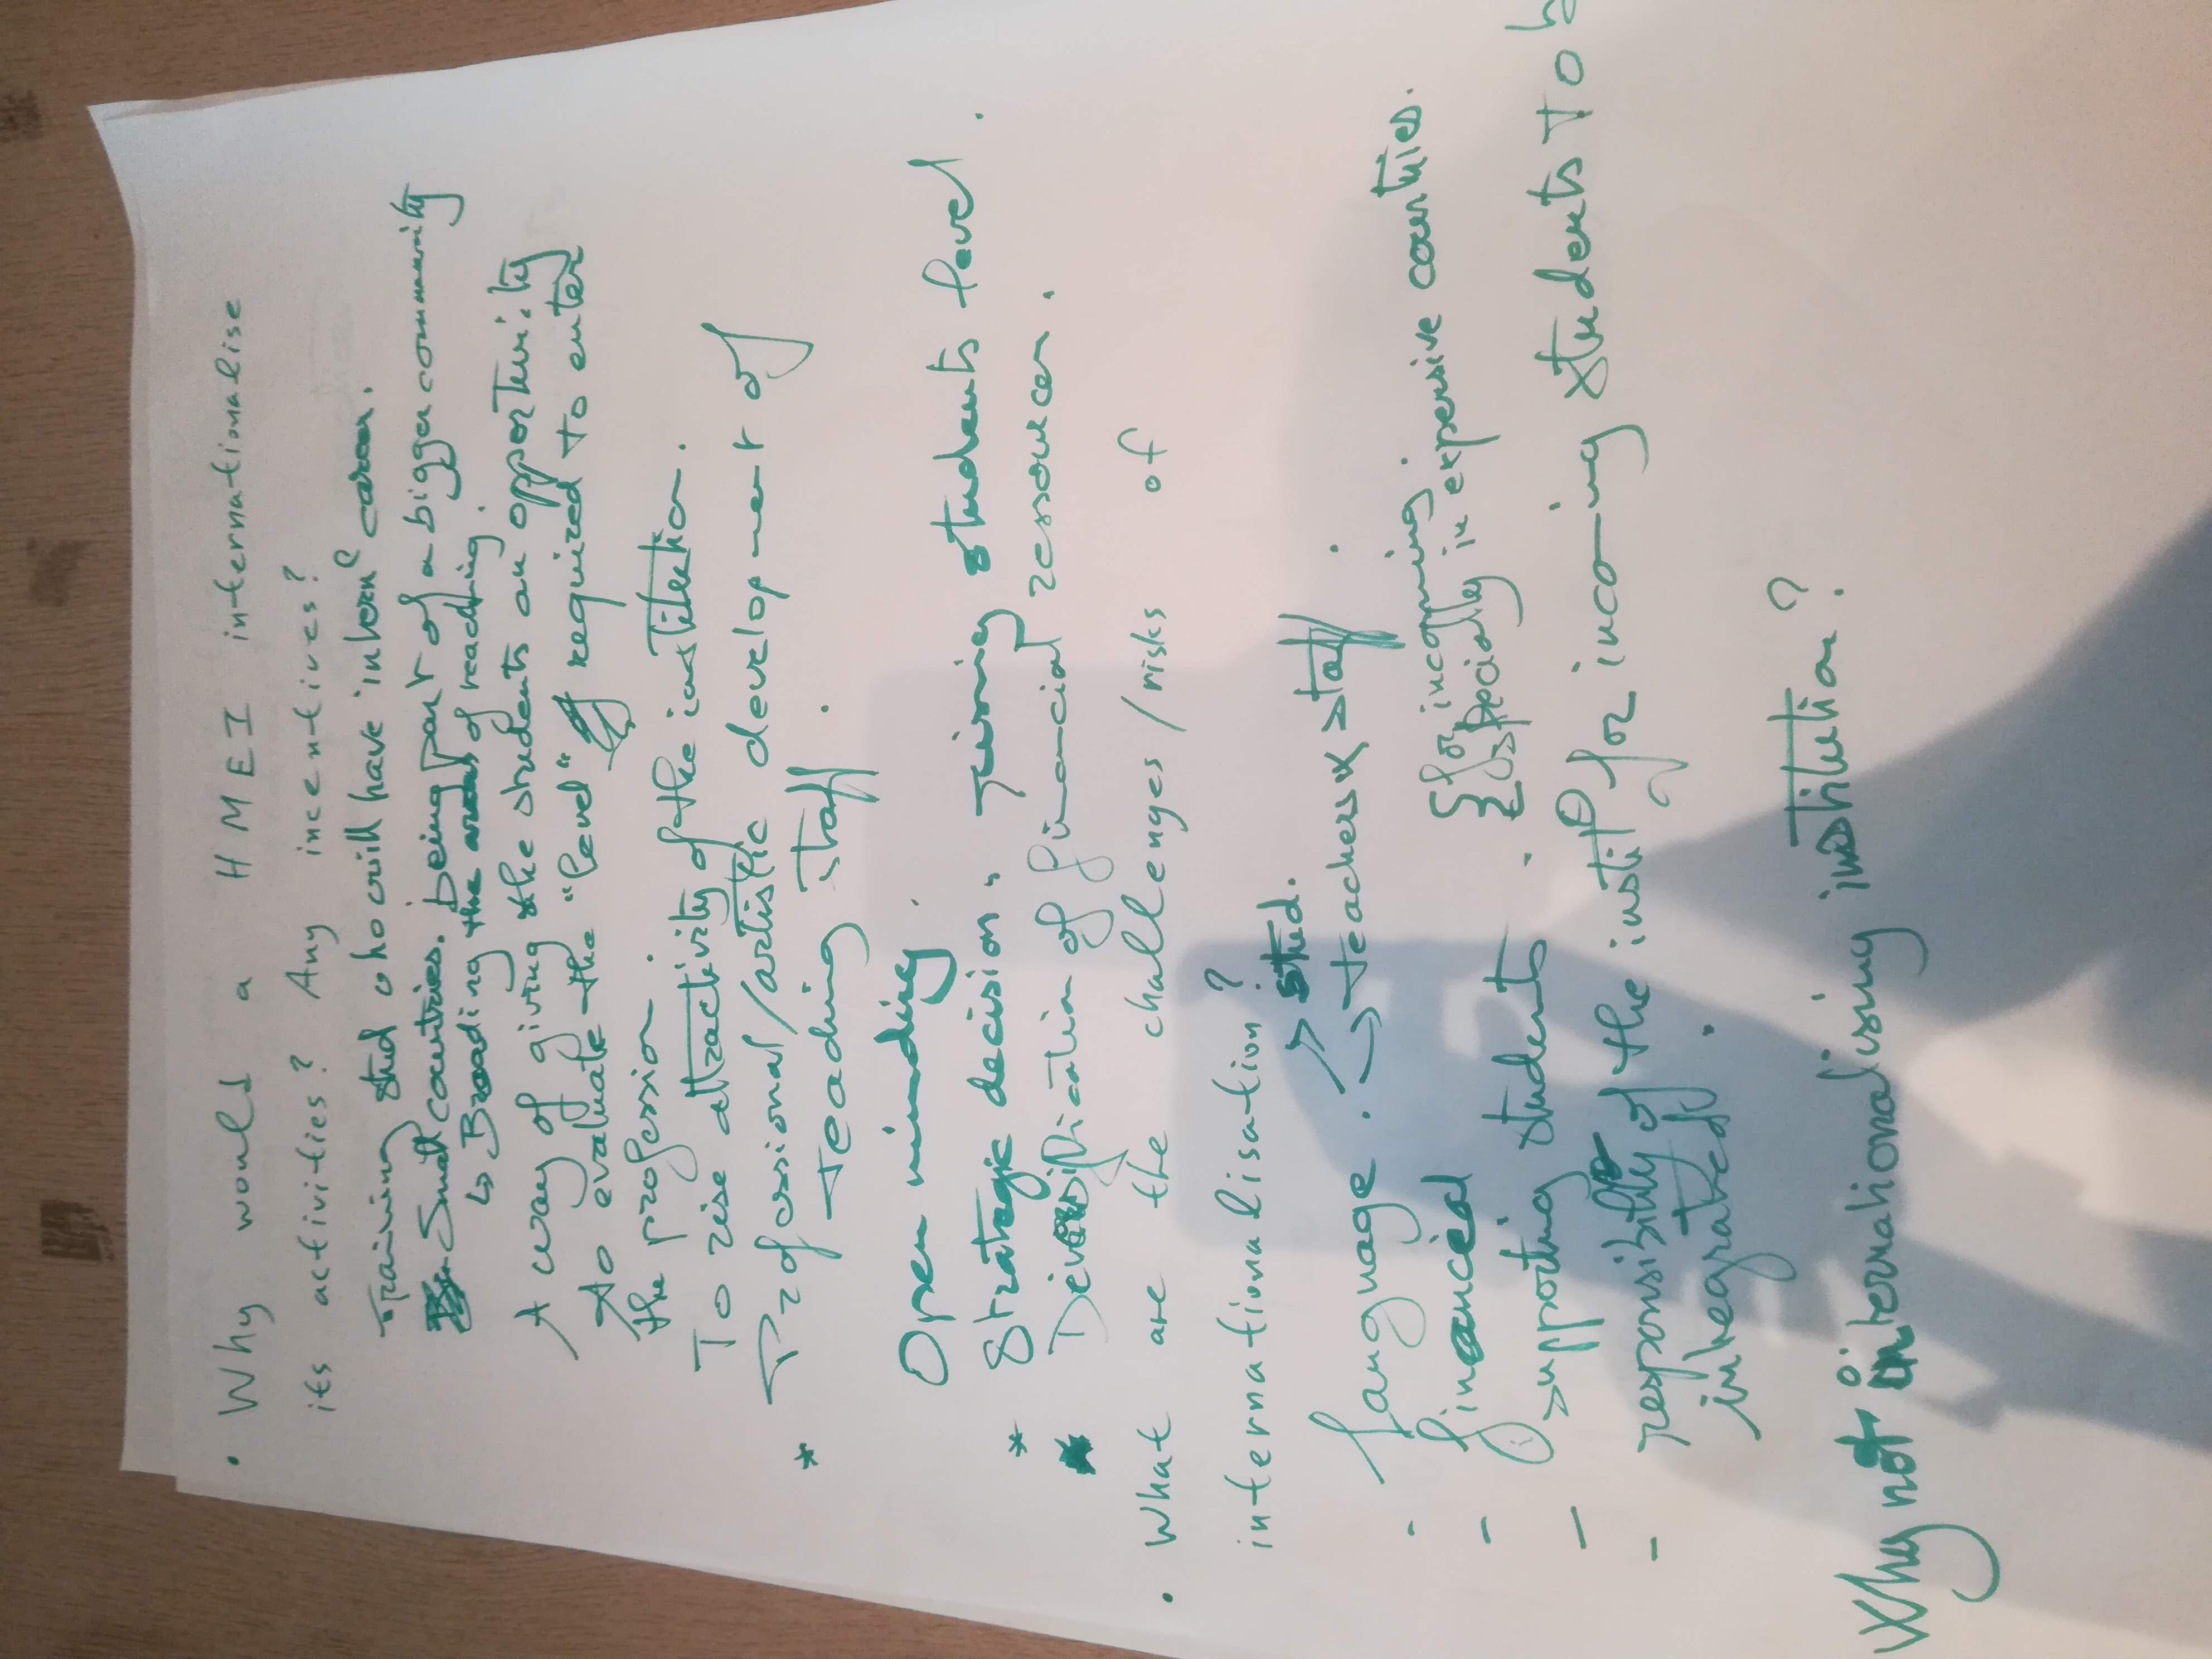 • Why would a HMEI internationalise
its activities? Any incentives?
Training stud who will have intern^l career.
Small countries. being part of a bigger community
↳ Broading the of reading.
A way of giving the students an opportunity
to evaluate the "level" required to enter
the profession.
To rise attractivity of the institution.
* Professional/artistic development of
teaching staff.
Open minding.
* Strategic decision, Jisning students level.
* Diversification of financial ressources.
• What are the challenges/risks of
internationalisation?
- language. → stud.
→ teachers & staff.
- financial { for incoming.
{ Specially in expensive countries.
- Supporting students.
- responsibility of the instit° for incoming students to b
integrated.
Why not internationalising institution?